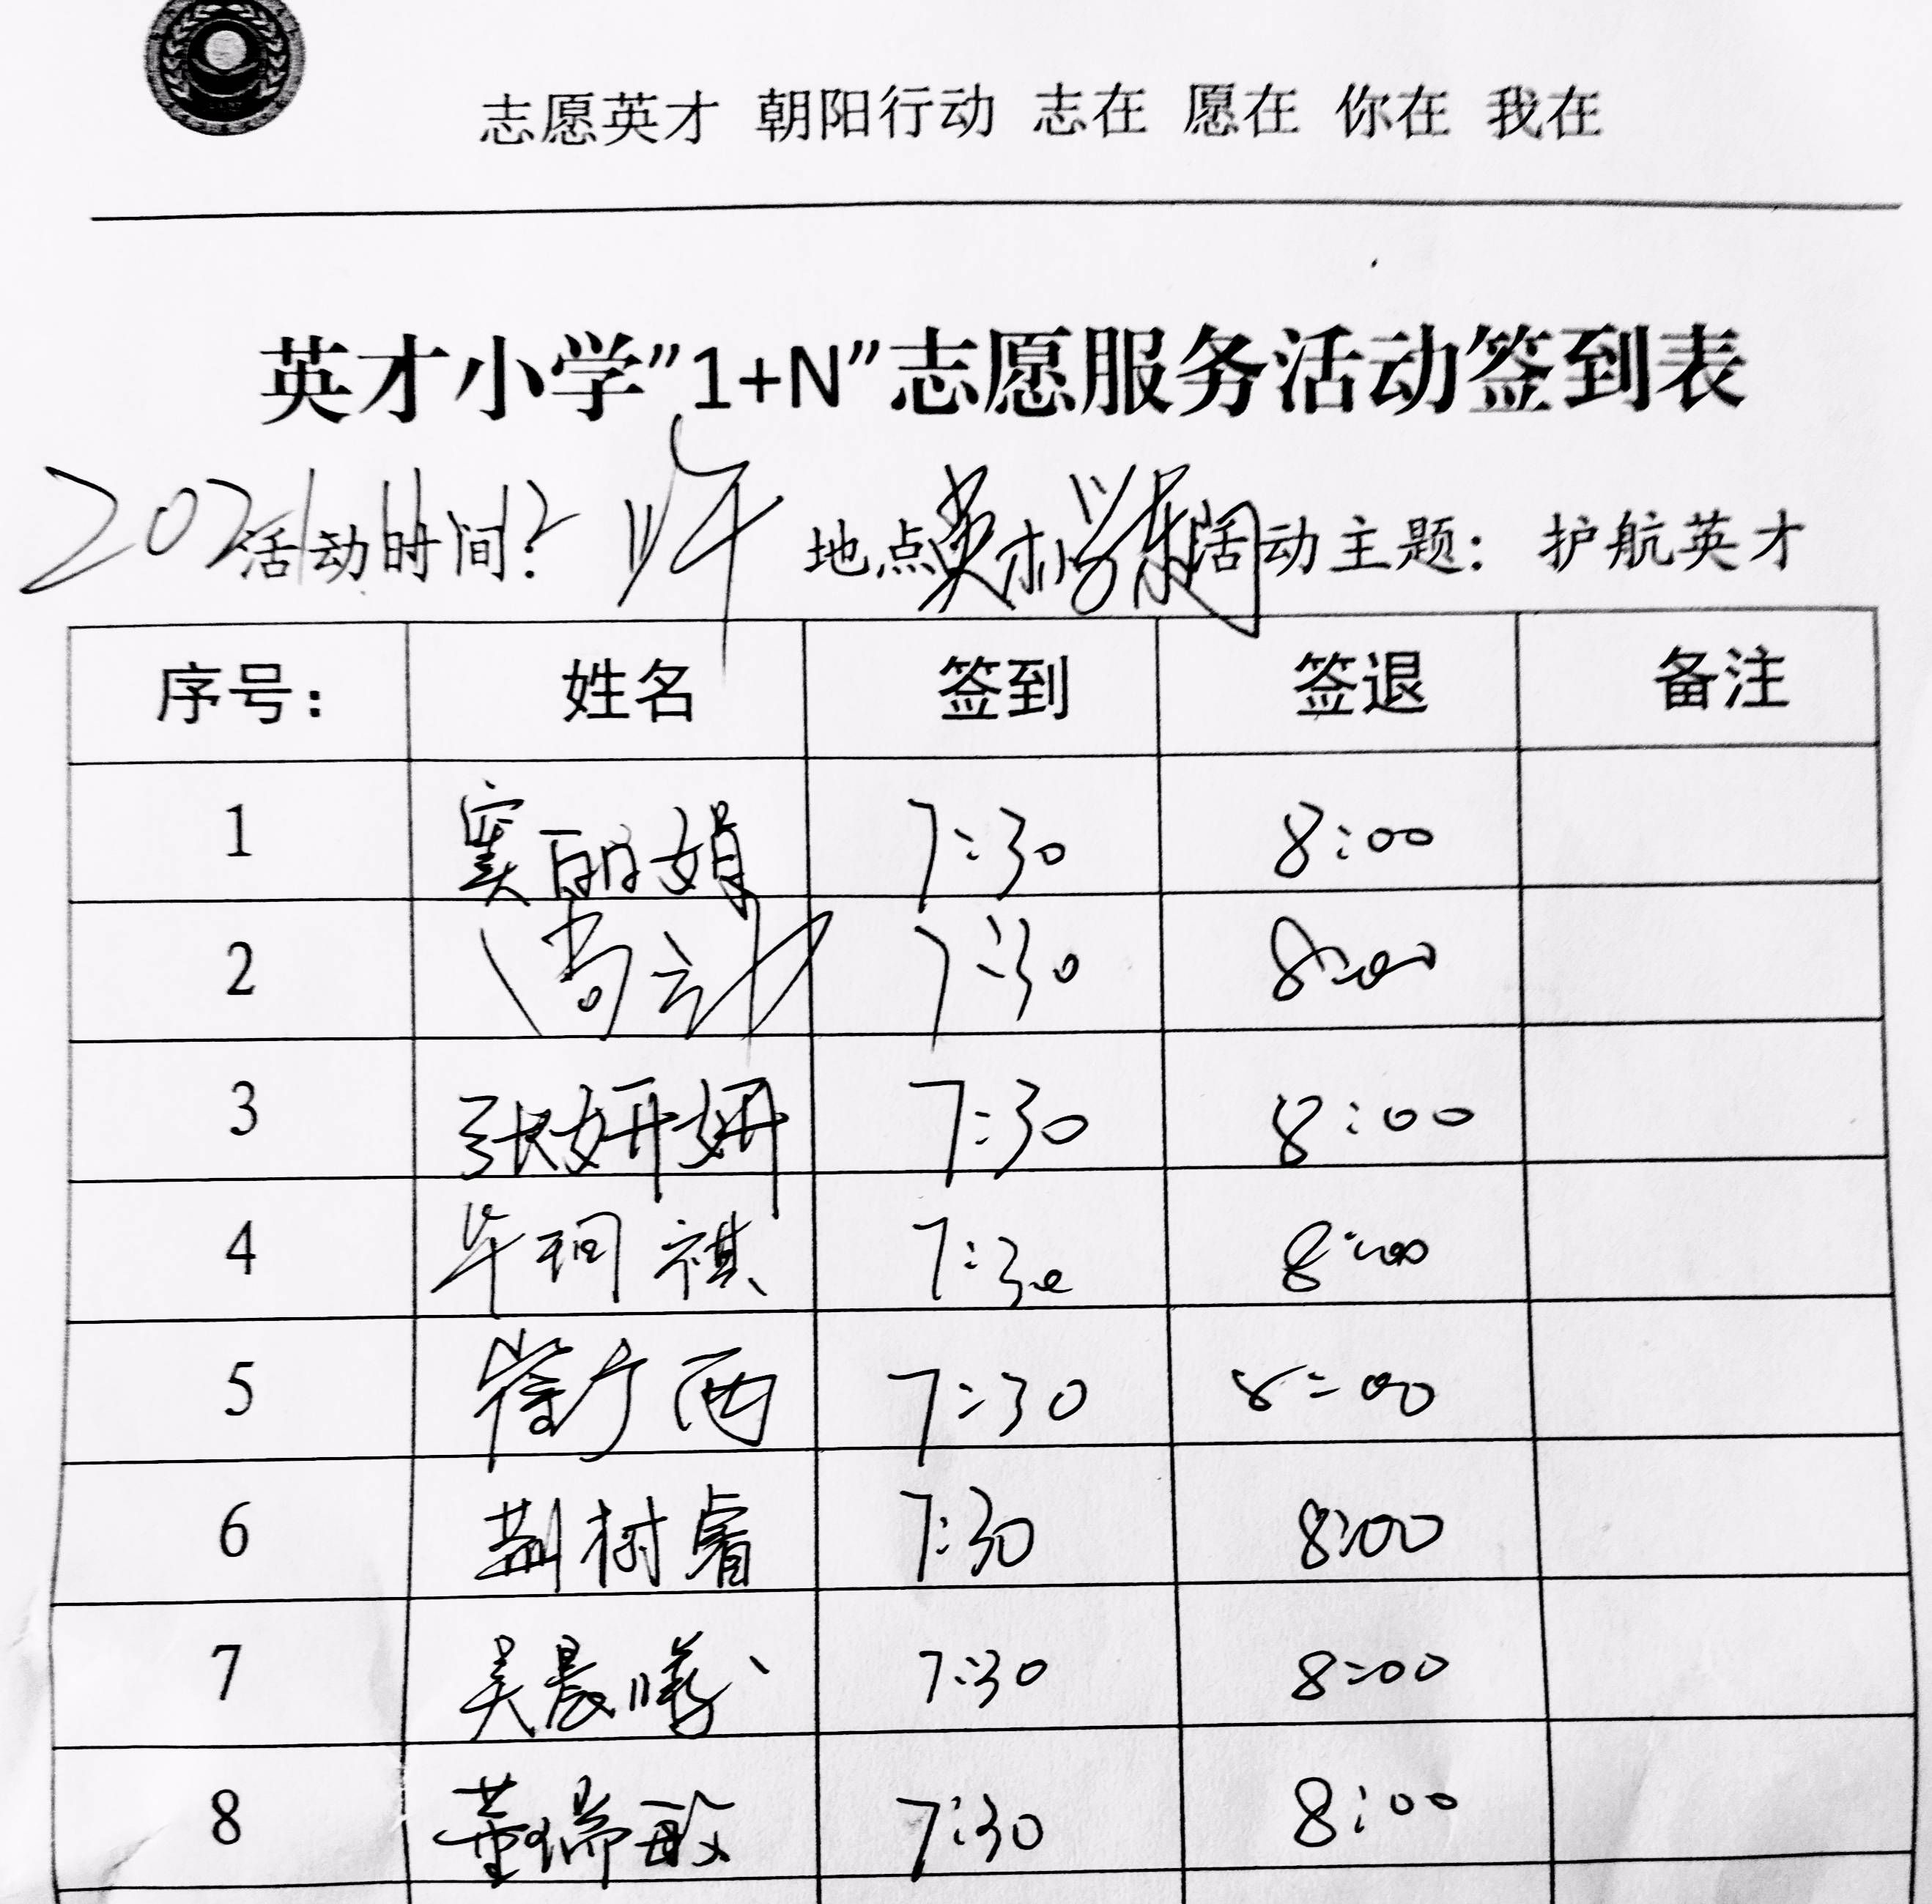 志愿英才 朝阳行动 志在 愿在 你在 我在
英才小学"1+N"志愿服务活动签到表
活动时间: 地点 英才小学 活动主题: 护航英才
序号: 姓名 签到 签退 备注
1 窦丽娟 7:30 8:00
2 7:30 8:00
3 张妍妍 7:30 8:00
4 毕珂祺 7:30 8:00
5 7:30 8:00
6 荆树睿 7:30 8:00
7 吴晨曦 7:30 8:00
8 董瑞敏 7:30 8:00